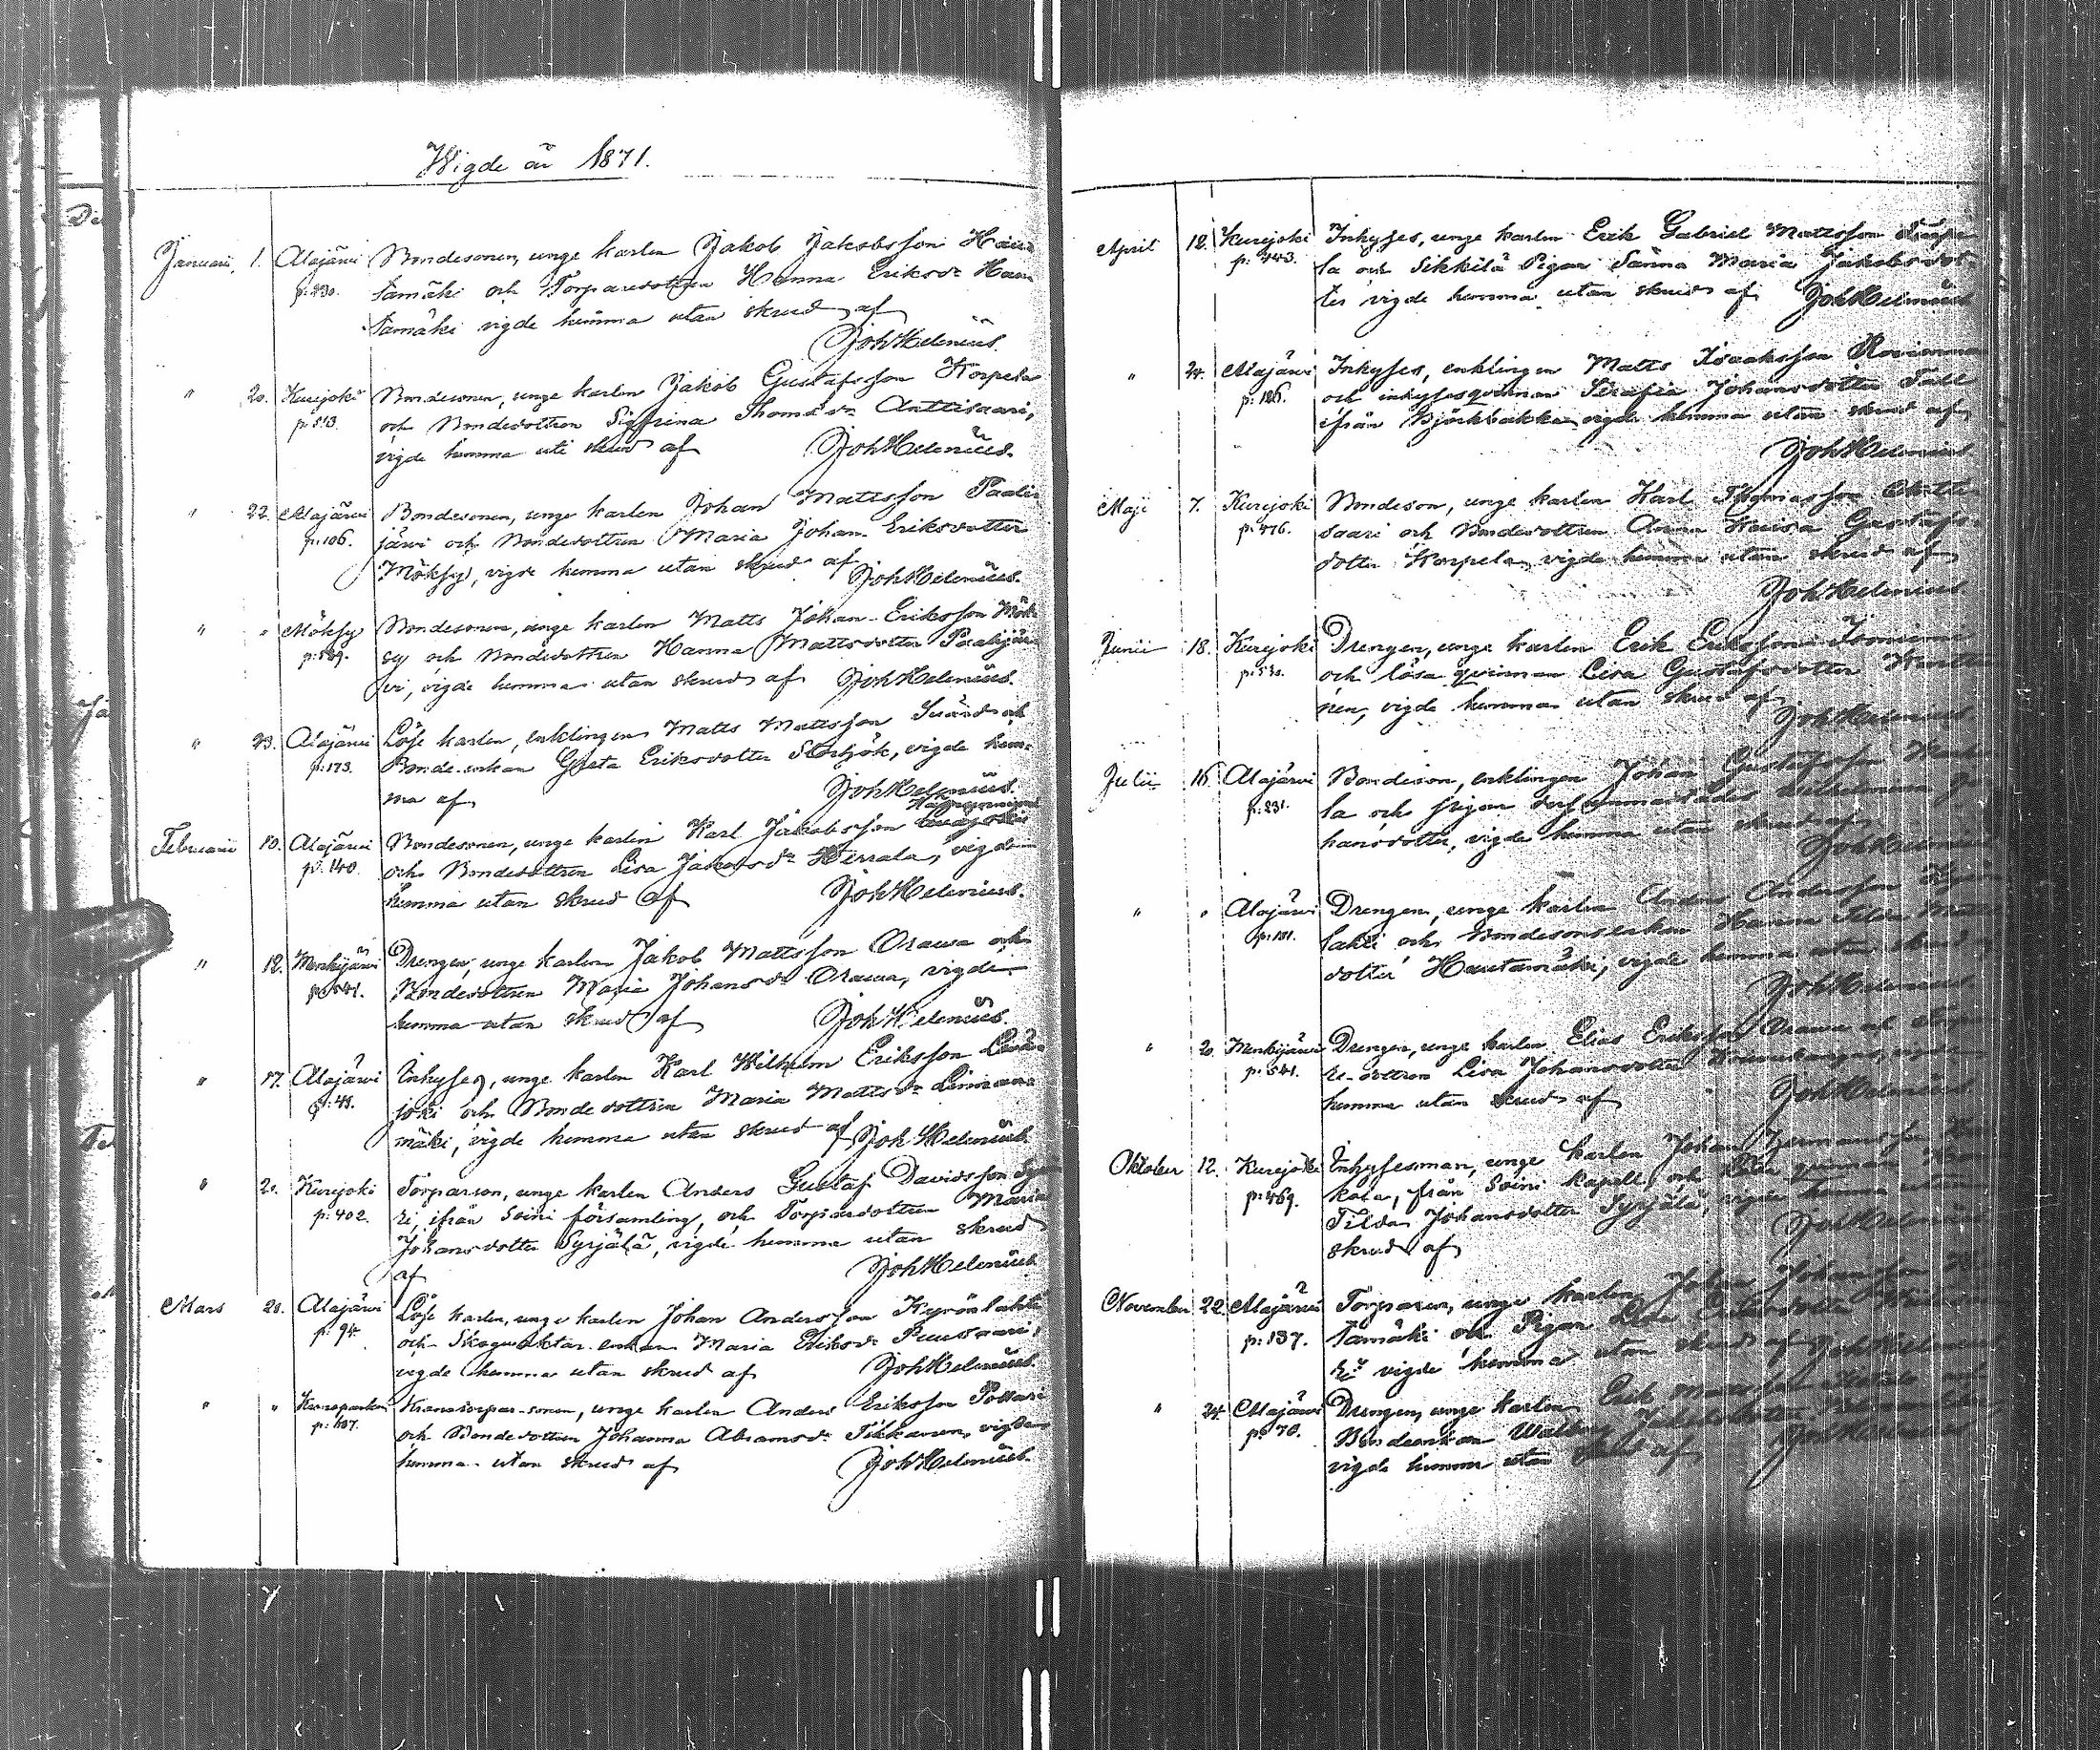 Wigde år 1871.
Januari, 1. Alajärvi Bondesonen, unge karlen Jakob Jakobsson Hau
p: 230. tamäki och Torparedottren Hanna Eriksdr Hau
tamäki vigde hemma utan skrud af
Joh Helenius.
" 20. Kurejoki Bondesonen, unge karlen Jakob Gustafsson Korpela
p: 513. och Bondedottren Sigfrina Thomasdr Anttisaari,
vigde hemma uti skrud af Joh Helenius.
" 22. Alajärvi Bondesonen, unge karlen Johan Mattsson Paali
p: 106. järvi och Bondedottren Maria Johan Eriksdotter
Möksy, vigde hemma utan skrud af Joh Helenius.
" " Möksy Bondesonen, unge karlen Matts Johan Eriksson Mök
p: 589. sy och Bondedottren Hanna Mattsdotter Paalijär
vi, vigde hemma utan skrud af Joh Helenius.
" 23. Alajärvi Löse karlen, enklingen Matts Mattsson Svärd och
p: 173. Bonde-enkan Greta Eriksdotter Storbjök, vigde hem-
ma af Joh Helenius.
Februari 10. Alajärvi Bondesonen, unge karlen Karl Jakobsson
p: 140. och Bondedottren Lisa Jakobsdr Herrala, vigde
hemma utan skrud af Joh Helenius.
" 12. Menkijärvi Drengen, unge karlen Jakob Mattsson Orawa och
p: 541. Bondedottren Maria Johansdr Orawa, vigde
hemma utan skrud af Joh Helenius.
" 17. Alajärvi Inhyses, unge karlen Karl Wilhelm Eriksson
p: 41. joki och Bondedottren Maria Mattsdr
mäki, vigde hemma utan skrud af Joh Helenius.
" 20. Kurejoki Torparson, unge karlen Anders Gustaf Davidsson
p: 402. ri, ifrån Soini församling, och Torpardottren Maria
Johansdotter Syrjälä, vigde hemma utan skrud
af Joh Helenius
Mars 20. Alajärvi Löse karlen, unge karlen Johan Andersson Kyrönlahti
p: 94. och Skogwaktar-enkan Maria Eriksdr Puusaari,
vigde hemma utan skrud af Joh Helenius.
" " Kronoparken Kronotorpar-sonen, unge karlen Anders Eriksson Pollari
p: 607. och Bondedottren Johanna Abramsdr Tikkanen, vigde
hemma utan skrud af Joh Helenius.
April 12. Kurejoki Inhyses, unge karlen Erik Gabriel Mattsson
p: 443. la och Sikkilä Pigan Sanna Maria Jakobsdot-
ter vigde hemma utan skrud af Joh Helenius
" 24. Alajärvi Inhyses, enklingen Matts Isaaksson
p: 186. och inhysesqvinnan Serafia Johansdotter Tall
ifrån Björkbakka vigde hemma utan skrud af
Joh Helenius
Maji 7. Kurejoki Bondeson, unge karlen Karl Thomasson Antti
p: 476. saari och Bondedottren Anna Kaisa Gustafs
dotter Korpela vigde hemma utan skrud af
Joh Helenius.
Junii 18. Kurejoki Drengen, unge karlen Erik Eriksson
p: 530. och lösa qvinnan Lisa Gustafsdotter
nen, vigde hemma utan skrud af
Joh Helenius
Julii 16. Alajärvi Bondeson, enklingen Johan Gustafsson
p: 231. la och pigan
hansdotter, vigde hemma utan skrud af
Joh Helenius
" " Alajärvi Drengen, unge karlen Anders Andersson Kyrön
p: 101. lahti och Bondesonsenkan Hanna
dotter Hautamäki, vigde hemma utan skrud
Joh Helenius
" 20. Menkijärvi Drengen, unge karlen Elias Eriksson Orawa och Torpa
p: 541. re-dottren Lisa Johansdotter vigde
hemma utan skrud af Joh Helenius
Oktober 12. Kurejoki Inhysesman, unge karlen Johan
p: 469. kola, från Soini kapell, och lösa qvinnan
Tilda Johansdotter Syrjälä, vigde hemma utan
skrud af Joh Helenius
November 22. Alajärvi Torparen, unge karlen Johan Johansson
p: 137. tamäki och Pigan Lisa
vigde hemma utan skrud af Joh Helenius
" 24. Alajärvi Drengen, unge karlen Erik
p: 70. Bondeenkan Walborg Jakobsdotter
vigde hemma utan skrud af Joh Helenius